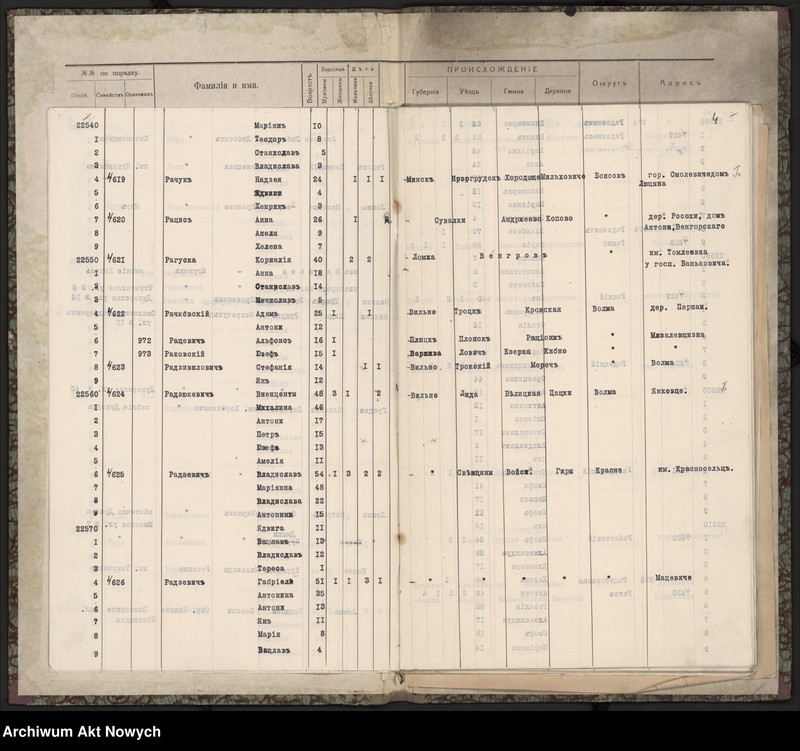 №№ по порядку.
Общій. Семействъ Одиночекъ
Фамилія и имя.
Возрастъ
Взрослые Дѣти
Мужчины Женщины Мальчики Дѣвочки
ПРОИСХОЖДЕНІЕ
Губернія Уѣздъ Гмина Деревня
Округъ
Адресъ
4
22540 Маріянъ 10
1 " Теодоръ 8
2 Станиславъ 5
3 " Владислава 3
4 4/619 Рачукъ Надзея 24 1 1 1 Минскъ Новогрудекъ Хородище Мильховиче Боисовъ гор. Смолевиче домъ Люцина
5 Ядвиги 4
6 " Хенрикъ 3
7 4/620 Рацисъ Анна 26 1 Сувалки Андржеево Копово " дер. Росохи, домъ Антона Венгорскаго
8 Амеля 9
9 Хелена 7
22550 4/621 Рагуска Корнелія 40 2 2 Ломжа Венгровъ " им. Томлевика у госп. Ваньковича.
1 Анна 18
2 " Станиславъ 14
3 Мечиславъ 5
4 4/622 Рачковскій Адамъ 25 1 1 Вильно Троцкъ Кронская Волма дер. Першаи.
5 Антони 12
6 972 Рацевичъ Альфонсъ 16 1 Плицкъ Плонскъ Раціонжъ " Мивалевщизна
7 973 Раковскій Юзефъ 15 1 Варшава Ловичъ Кверка Жибно " "
8 4/623 Радзивиловичъ Стефанія 14 1 1 Вильно. Трокскій Меречъ " Волма
9 Янъ 12
22560 4/624 Радзюкевичъ Винценты 48 3 1 2 Вильно Лида Вѣлицкая Цацки Волма Янковце.
1 " Михалина 46
2 Антони 17
3 Петръ 15
4 Юзефъ 13
5 Амелія 11
6 4/625 Радзевичъ Владиславъ 54 1 3 2 2 " Свѣнцяны Войск. Гиры Красне им. Красносельцъ.
7 Маріянна 48
8 Владислава 22
9 " Антонина 15
22570 Ядвига 11
1 " " Вацлавъ 13
2 Владиславъ 12
3 Тереса 1
4 4/626 Радзевичъ Габріель 51 1 1 3 1 " " " " " Мацевиче
5 Антонина 35
6 Антони 13
7 Янъ 11
8 Марія 8
9 Вацлавъ 4
Archiwum Akt Nowych